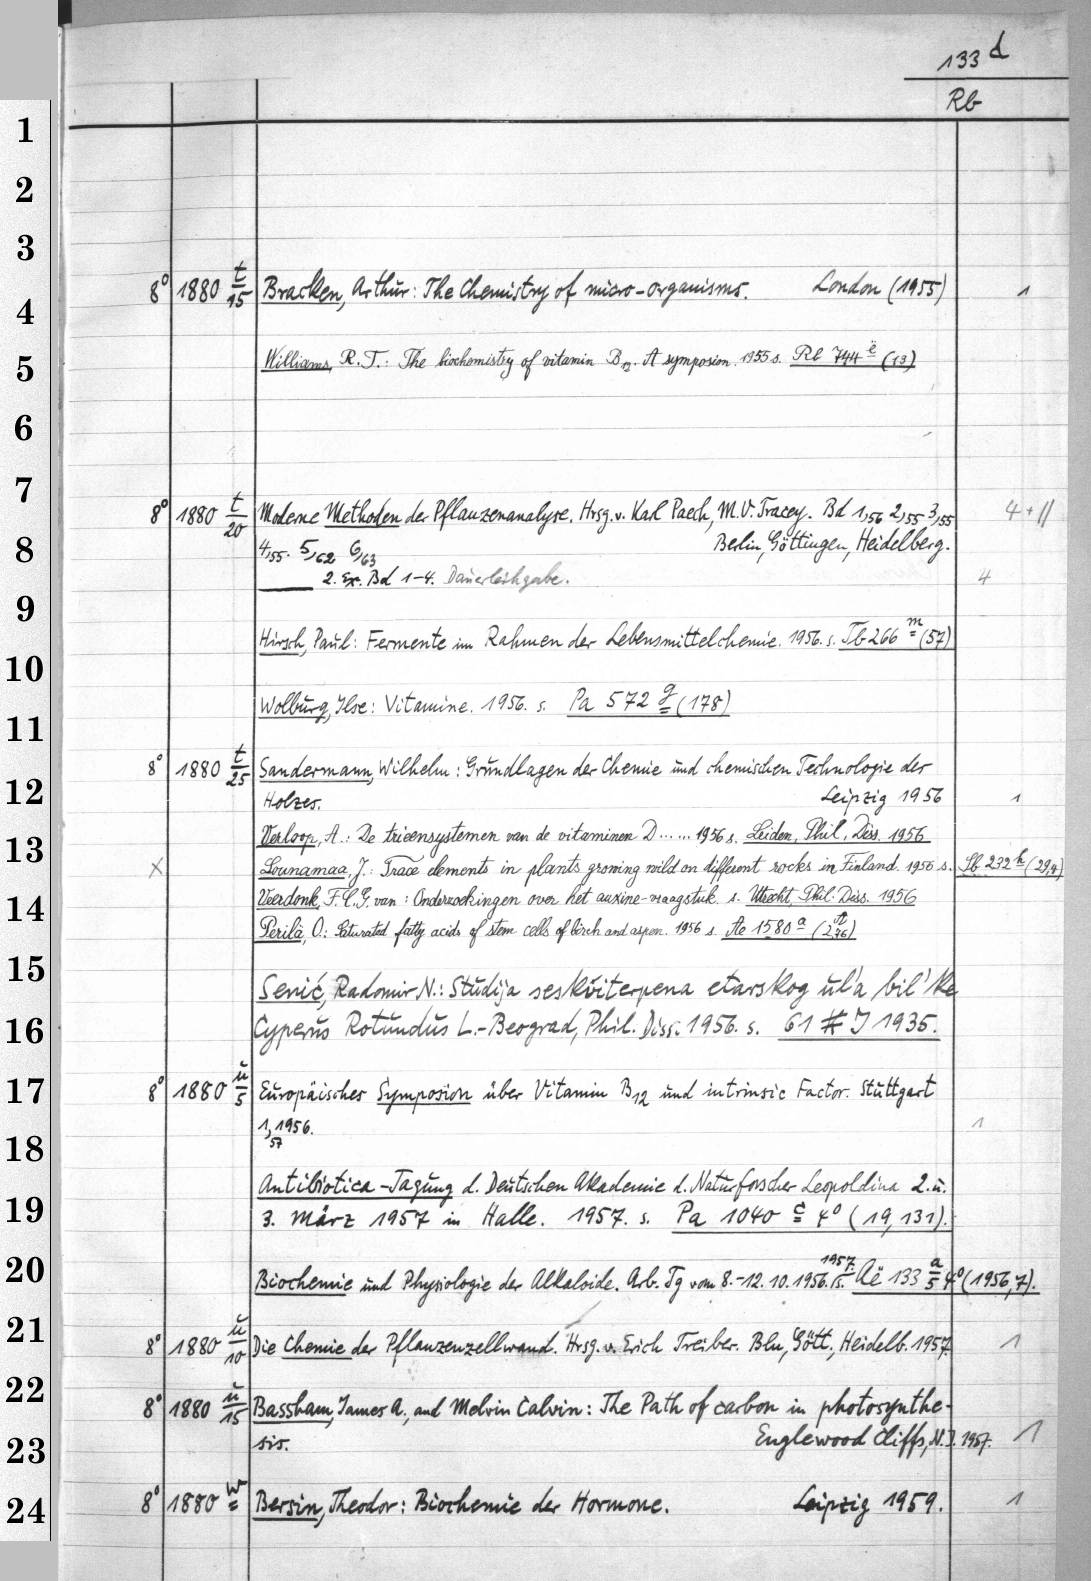 133 d
Rb
1
2
3
8° 1880 t/15 Bracken, Arthur: The Chemistry of micro-organisms. London (1955) 1
4
Williams, R.T.: The biochemistry of vitamin B12. A symposion. 1955 s. Rb 744 e (13)
5
6
7
8° 1880 t/20 Moderne Methoden der Pflanzenanalyse. Hrsg. v. Karl Paech, M.V. Tracey. Bd 1,56 2,55 3,55 4+11
8
4,55. 5,62 6,63 Berlin, Göttingen, Heidelberg.
2. Ex. Bd 1-4. Dauerleihgabe. 4
9
Hirsch, Paul: Fermente im Rahmen der Lebensmittelchemie. 1956. s. Tb 266 m (57)
10
Wolburg, Ilse: Vitamine. 1956. s. Pa 572 g (178)
11
8° 1880 t/25 Sandermann, Wilhelm: Grundlagen der Chemie und chemischen Technologie des
12
Holzes. Leipzig 1956 1
Verloop, A.: De trieensystemen van de vitaminen D...... 1956 s. Leiden, Phil. Diss. 1956
13
X Lounamaa, J.: Trace elements in plants growing wild on different rocks in Finland. 1956 s. Sb 232 h (29,4)
Veerdonk, F.C.G. van: Onderzoekingen over het auxine-vraagstuk. s. Utrecht, Phil. Diss. 1956
14
Perilä, O.: Saturated fatty acids of stem cells of birch and aspen. 1956 s. Ae 1580 a
15
Senić, Radomir N.: Studija seskviterpena etarskog ul'a bil'ke
16
Cyperus Rotundus L.-Beograd, Phil. Diss. 1956. s. 61 # J 1935.
17
8° 1880 u/5 Europäisches Symposion über Vitamin B12 und intrinsic Factor. Stuttgart
1,1956. 1
57
18
Antibiotica-Tagung d. Deutschen Akademie d. Naturforscher Leopoldina 2. u.
19
3. März 1957 in Halle. 1957. s. Pa 1040 c 4° (19,131).
20
Biochemie und Physiologie der Alkaloide. Arb. Tg vom 8.-12. 10. 1956. 1957. s. Aë 133 a/5 4° (1956,7).
21
8° 1880 u/10 Die Chemie der Pflanzenzellwand. Hrsg. v. Erich Treiber. Bln, Gött., Heidelb. 1957 1
22
8° 1880 u/15 Bassham, James A., and Melvin Calvin: The Path of carbon in photosynthe-
23
sis. Englewood Cliffs, N.J. 1957. 1
24
8° 1880 w Bersin, Theodor: Biochemie der Hormone. Leipzig 1959. 1